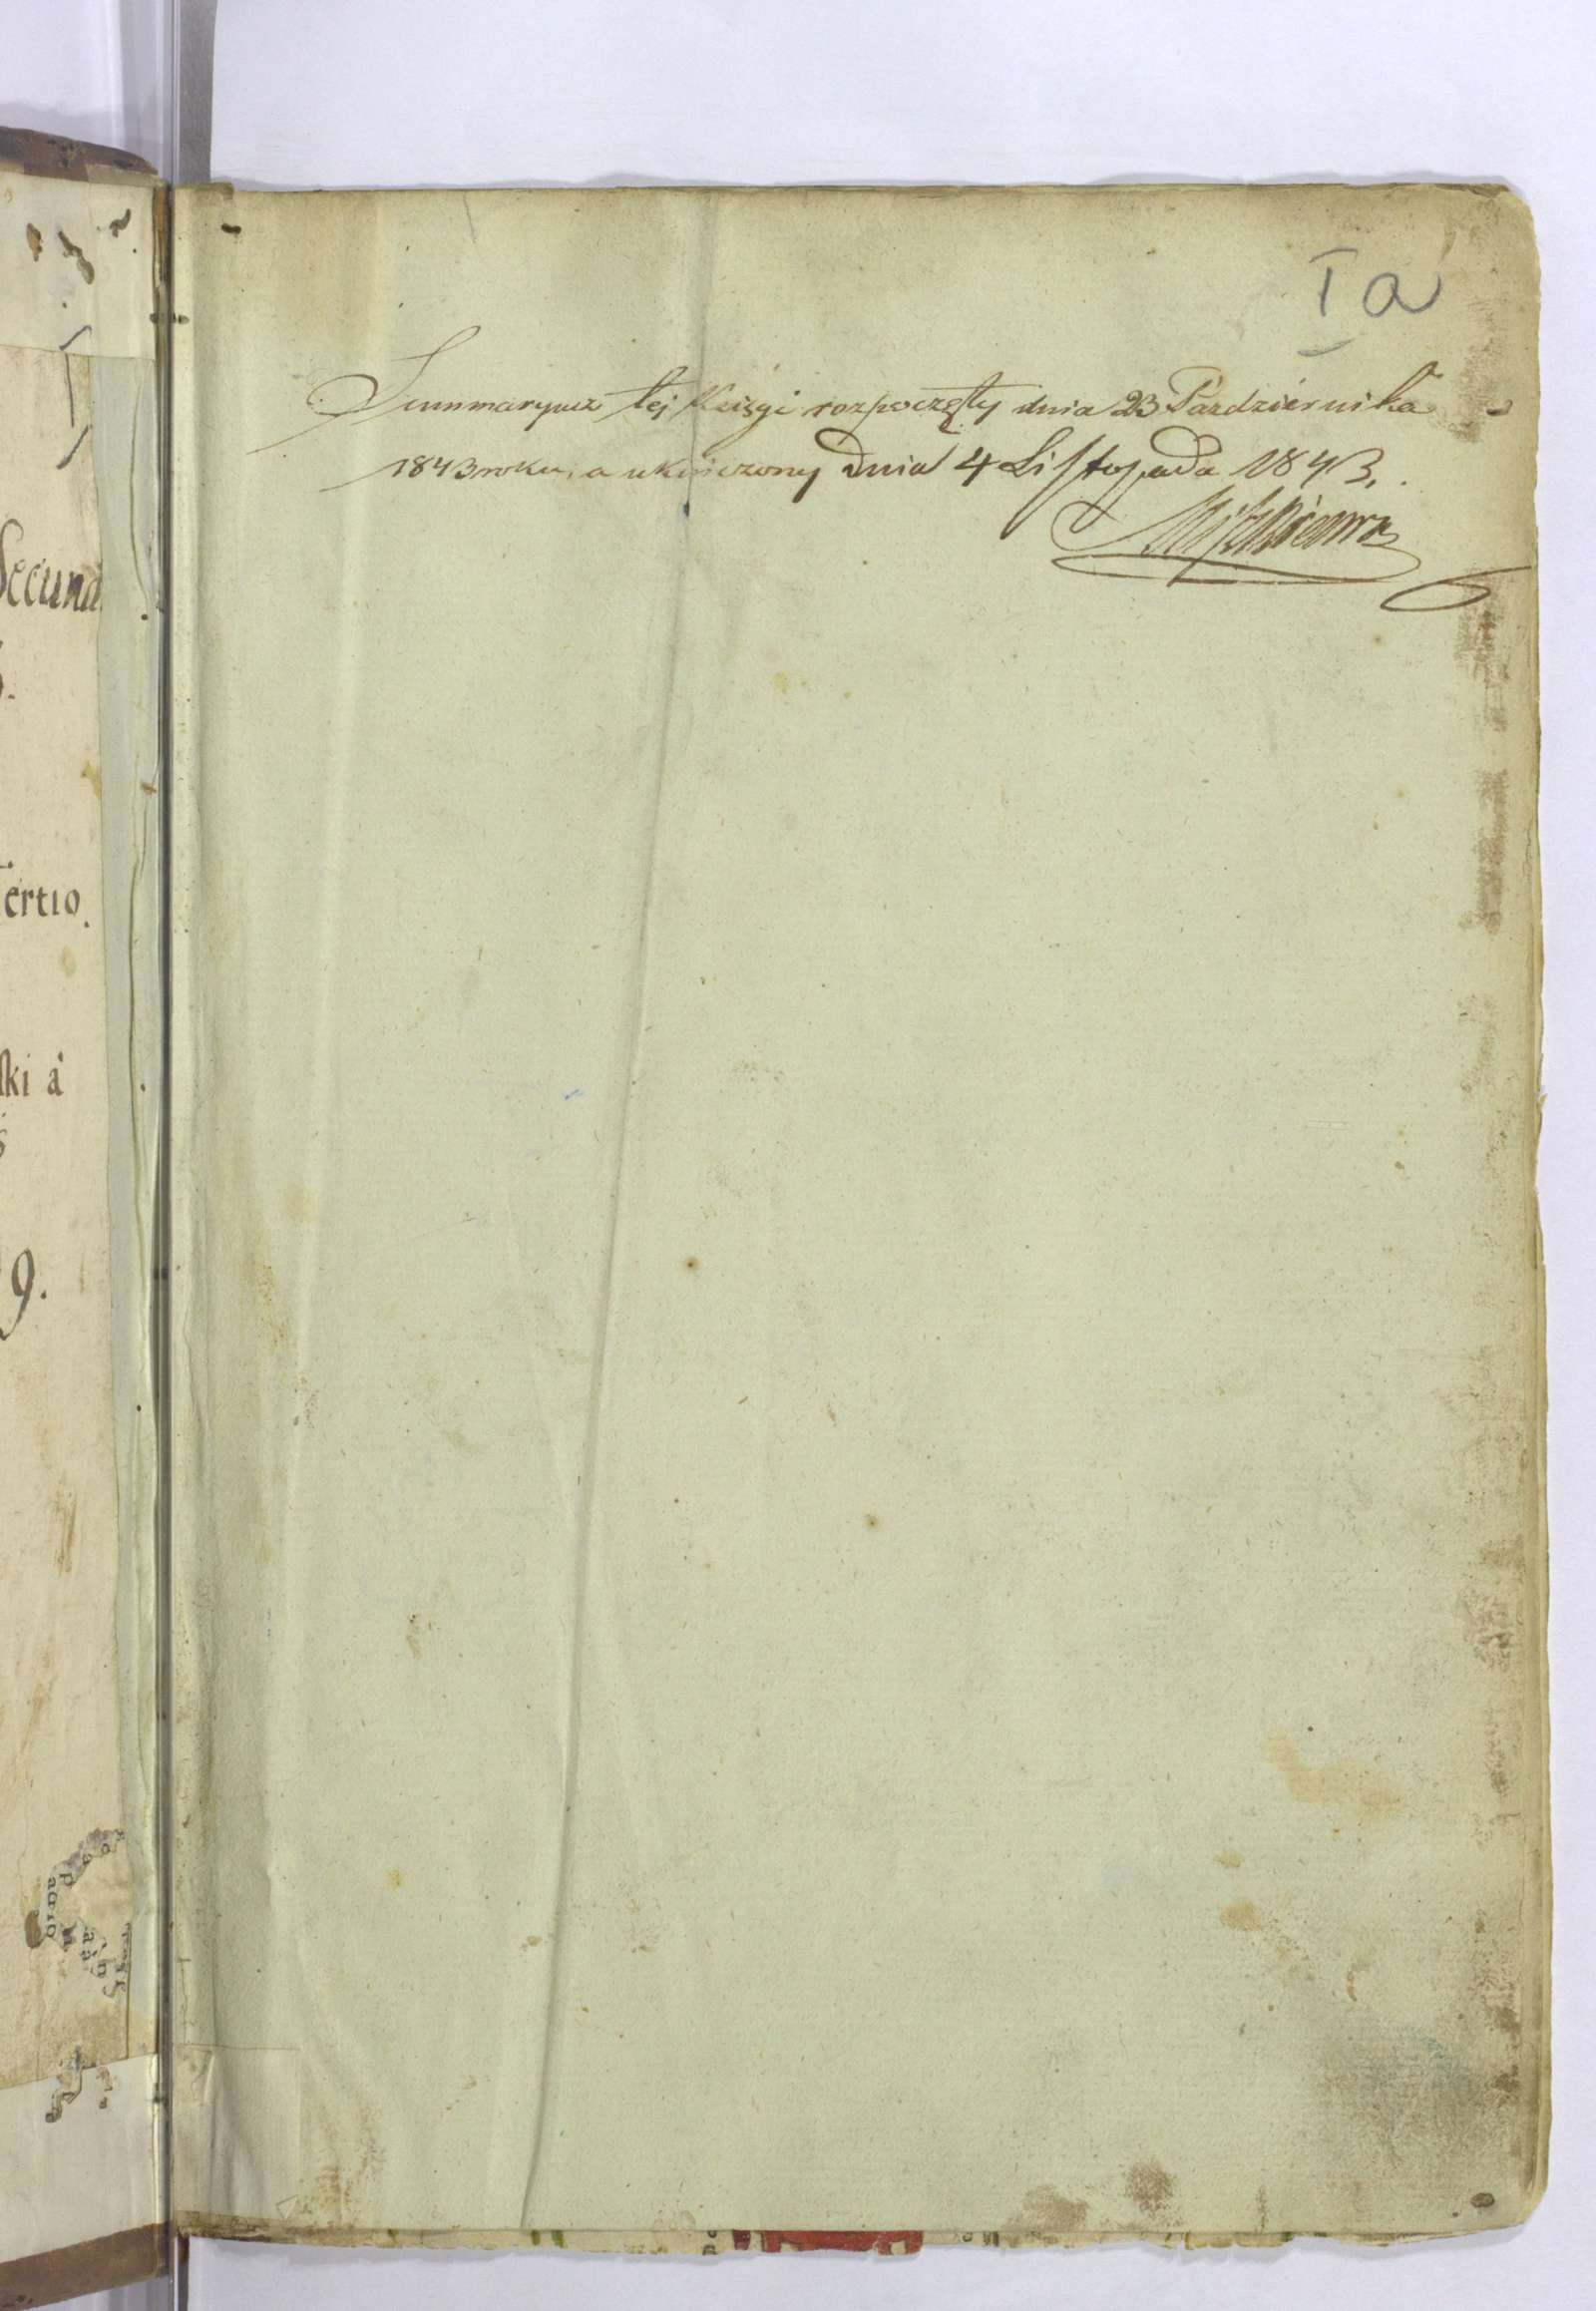 Secund
ertio.
ski á
9.
Ia
Summaryusz tej Księgi rozpoczęty dnia 23 Pazdziernika
1843 roku, a ukończony dnia 4 Listopada 1843.